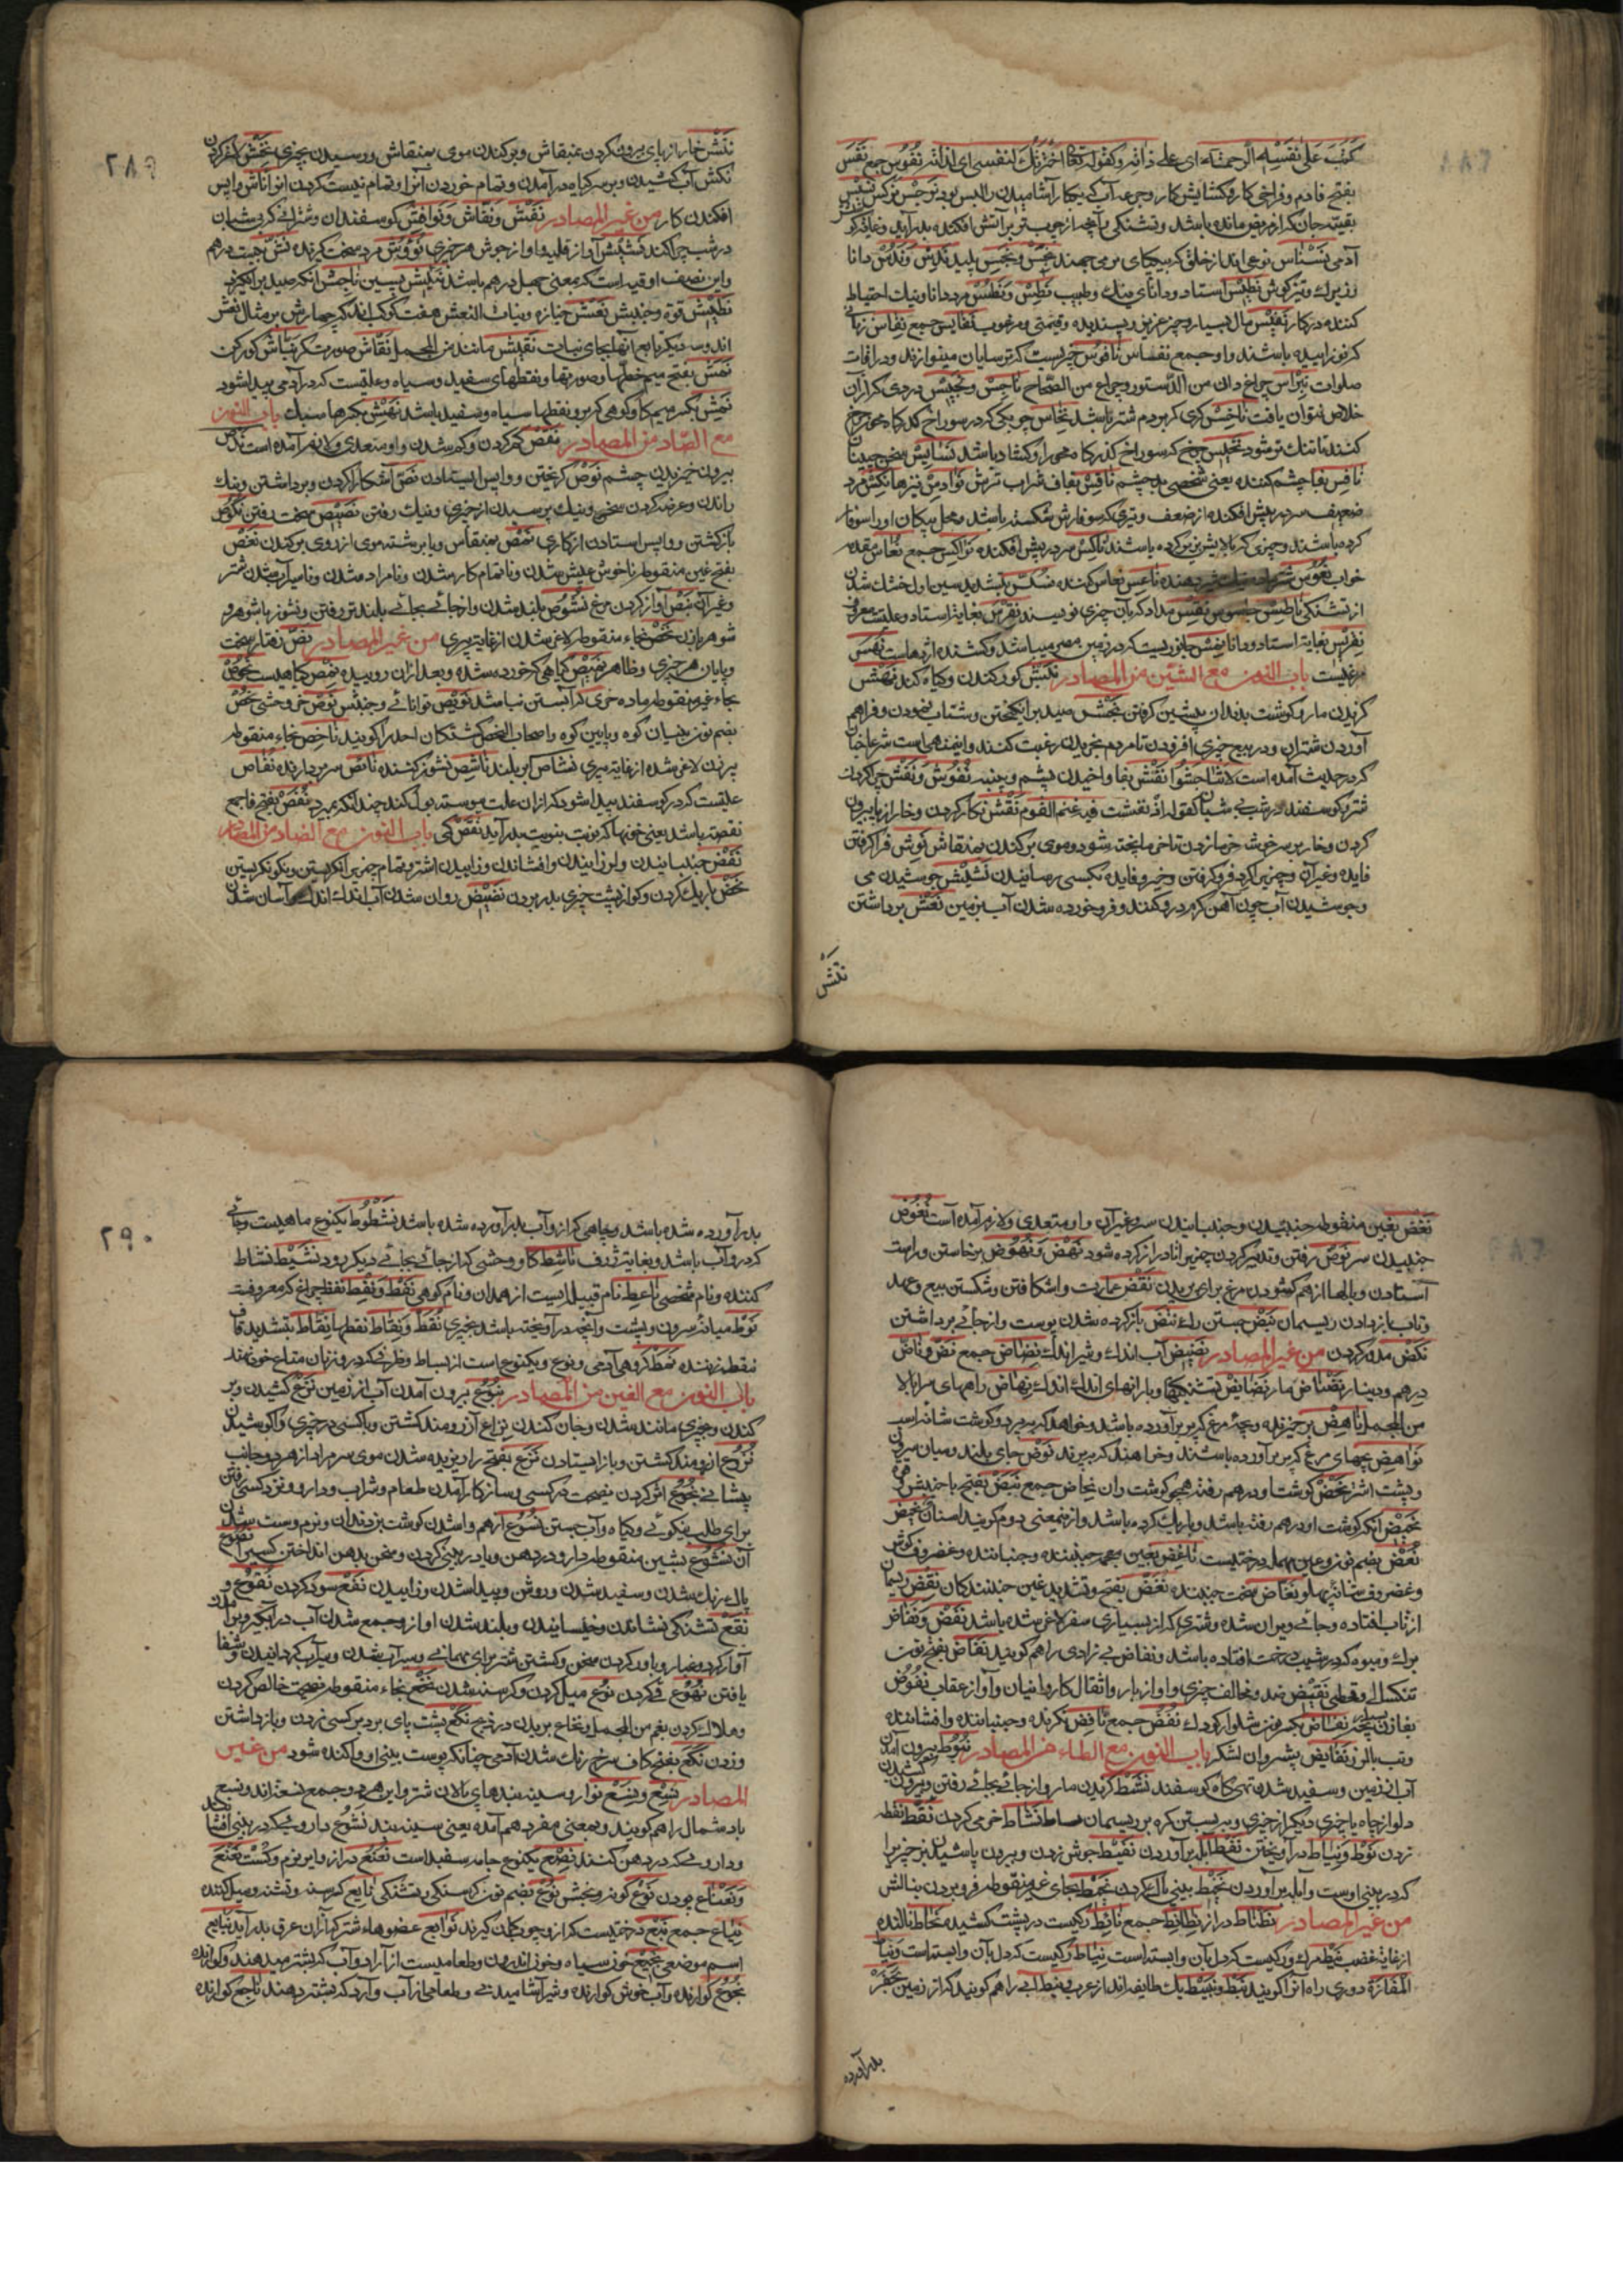 كَتَبَ عَلَى نَفْسِهِ الرَّحْمَةَ ای علی ذاته و کقوله تعالی اخترتك لنفسی ای لذاتی نُفُوس جمع نَفْس
بفتح فا دم و فراخی کار و کشایش کار و جرعه آب که بیکبار آشامیدن را بس بود نَرْجِس نرکس نَسِیْس
بقیته جان که از مریض مانده باشد و تشنکی و آنچه از چوب تر بر آتش افکنده بدر آید
آدمی نَسْنَاس نوعی اند از خلق که بیکپای بر می جهند نَجَس و نَجِس پلید نَدِس و نَدُس دانا
و زیرك و تیزکوش نِطِّیس استاد و دانای نیك و طبیب نَطِس و نَطُس مرد دانا و نیك احتیاط
کننده در کار نَفِیْس مال بسیار و چیز عزیز و پسندیده و قیمتی و مرغوب نفایس جمع نِفَاس زنانی
که نو زاییده باشند و او جمع نفساس نَاقُوس چیزیست که ترسایان مینوازند در اوقات
صلوات نِبْرَاس چراغ دان من الدستور و چراغ من الصحاح نَاجِس و نَجِیْس دردی که از آن
خلاص نتوان یافت نَاخِس کری که بر دم شتر باشد نِخَاس چوبکی که در سوراخ
کنند تا تنك تر شود نَخِیس چرخ که سوراخ کذرکاه محور او کشاد باشد
نَافِس بفا چشم کننده یعنی شخصی بد چشم نَاقِس بقاف شراب ترش نَوَادِس نیزها نِکْس مرد
ضعیف سر در پیش افکنده از ضعف و تیری که سوفارش شکسته باشد و محل پیکان او را سوفار
کرده باشند و چیزی که بالایش زیر کرده باشند نَاکِس سر در پیش افکنده نَوَاکِس جمع نُعَاس مقدمه
خواب نَعُوس ناعِس نعاس کننده نَسّ بتشدید سین اول خشك شدن
از تشنکی نَاطِس جاسوس نِقْس مداد که بآن چیزی نویسند نِقْرِس بغایة استاد و علتیست معروف
نِقْرِیْس بغایة استاد و دانا نِمْس جانوریست که در زمین مصر میباشد و کشنده اژدهاست نُهَس
مرغیست باب النون مع الشین من المصادر نَبْش کور کندن و کیاه کندن نَهْش
کزیدن مار و کوشت بدندان پیشین کرفتن نَجْش صید برانکیختن و شتاب نمودن و فراهم
آوردن شتران و در بیع چیزی افزودن تا مردم بخریدن رغبت کنند و این منهی است شرعا چنان
که در حدیث آمده است لا تناجشوا نَفْش بفا واخیدن پشم و پنبه نُفُوش و نَفَش چرا کردن
شتر و کوسفند در شب بی شبان کقوله اذ نفشت فیه غنم القوم نَقْش نکار کردن و خار از پا بیرون
کردن و خار بر سر خوشه خرما زدن تا خرما پخته شود و موی برکندن بمنقاش نَوش فرا کرفتن
فایده و غیرآن و چیزی را کرد فرو کرفتن و خیر و فایده بکسی رسانیدن نَشِیْش جوشیدن می
و جوشیدن آب چون آهن کرم درو کنند و فرو خورده شدن آب بزمین نَعْش برداشتن
نَتْش
۲۸۹
نَتْش خار از پای بیرون کردن بمنقاش و برکندن موی بمنقاش و رسیدن بچیزی
نَکْش آب کشیدن و بر سر کیاه در آمدن و تمام خوردن آنرا و تمام نیست کردن آنرا نَاش واپس
افکندن کار من غیر المصادر نَفَش و نُفَّاش و نَوَافِش کوسفندان و شترانی که بی شبان
در شب چرا کنند نَشِیْش آواز قلیه و آواز جوش هر چیزی نَوُوش مرد سخت کیرنده نَشّ بیست درهم
و این نصف اوقیه است که بمعنی چهل درهم باشد نَاجِش آنکه صید برانکیزد
نَطِیش قوة و جنبش نَعْش جنازه و بنات النعش هفت کوکب اند که چهارش بر مثال نعش
اند و سه دیکر تابع آنها بجای بنات نَقِیش مانند من المجمل نَقَّاش صورت کر نَبَّاش کورکن
نَمَش بفتح میم خطها و صورتها و نقطهای سفید و سیاه و علتیست که در آدمی پیدا شود
نَمِش بکسر میم کاو کوهی که برو نقطها سیاه و سفید باشد نَهِش بکسر ها سبك باب النون
مع الصاد من المصادر نَقْص کم کردن و کم شدن و او متعدی و لازم آمده است
بیرون خیزیدن چشم نَوْص کریختن و واپس ایستادن نَصّ آشکارا کردن و برداشتن و نیك
راندن و عرضه کردن سخن و نیك پرسیدن از چیزی و نیك رفتن نَصِیْص سخت رفتن نُکُوص
بازکشتن و واپس استادن از کاری نَمْص بمنقاش و یا برشته موی از روی برکندن نَغَص
بفتح غین منقوطه ناخوش عیش شدن و ناتمام کار شدن و نامراد شدن و ناسیراب شدن شتر
و غیرآن نَبْص آواز کردن مرغ نُشُوص بلند شدن و از جائی بجائی بلند تر رفتن و نشوز با شوهر و
شوهر با زن نَخْص بخاء منقوطه لاغر شدن از غایة پیری من غیر المصادر نَصّ رفتار سخت
و پایان هر چیزی و ظاهر نَمِیْص کیاهی که خورده شده و بعد از آن روییده نِمْص کیاهیست نَحُوص
بحاء غیر منقوطه ماده خری که آبستن نباشد نَوِیْص توانائی و جنبش نَوْص خر وحشی نُحْص
بضم نون بنیان کوه و پایین کوه و اصحاب النحص کشتکان احد را کویند نَاخِص بخاء منقوطه
پیر زن لاغر شده از غایة پیری نَشَاص ابر بلند نَاشِص نشوز کننده نَائِص سر بردارنده نُقَاص
علتیست که در کوسفند پیدا شود که از آن علت پیوسته بول کند چندانکه بمیرد نُفَص بفتح فا جمع
نفصة باشد یعنی خونها که نوبت بنوبت بدر آید نَقْص کمی باب النون مع الضاد من المصادر
نَفْض جنبانیدن و لرزانیدن و افشاندن و زاییدن اشتر و تمام چیزی را نکریستن و نیکو نکریستن
نَحْض باریك کردن و کو از پشت چیزی بدر بردن نَضِیْض روان شدن آب اندك اندك آسان شدن
نَغْض بغین منقوطه جنبیدن و جنبانیدن سر و غیرآن و او متعدی و لازم آمده است نُغُوض
جنبیدن سر نَوْض رفتن و تدبیر کردن چیزی را تا دراز کرده شود نَهْض و نُهُوض برخاستن و راست
آستادن و بالها از هم کشودن مرغ برای پریدن نَقْض عمارت واشکافتن و شکستن بیع و عهد
و تاب باز دادن ریسمان نَبْض جستن رك نَتْض باز کرده شدن پوست و از جائی برداشتن
نَکْض مدد کردن من غیر المصادر نَضِیْض آب اندك و شیر اندك نِضَاض جمع نَضّ و نَاضّ
درهم و دینار نَضْنَاض مار نَضَائِض تشنکیها و بارانهای اندك اندك نِهَاض راههای سر ببالا
من المجمل نَاهِض برخیزنده و بچۀ مرغ که پر بر آورده باشد و خواهد که بپرد و کوشت شانه اسب
نَوَاهِض بچهای مرغ که پر بر آورده باشند و خواهند که بپرند نَوْض جای بلند و میان سرون
و پشت اشتر نَحْض کوشت او درهم رفته همچو کوشت ران نِحَاض جمع نَبَض بفتح با جنبش
نَحِیْض آنکه کوشت او درهم رفته باشد و باریك کرده باشد و از نیمعنی دوم کویند لسنان نَحِیْض
نُعْض بضم نون و عین مهمل درختیست نَاغِض بغین معجمه جنبنده و جنباننده و غضروف کوش
و غضروف شانه نَغَّاض سخت جنبنده نُغَّض بفتح و تشدید غین جنبندکان نِقْض ریسمان
از تاب افتاده و جائی ویران شده و شتری که از بسیاری سفر لاغر شده باشد نَفَض و نُفَاض
برك و میوه که در شیب درخت افتاده باشد و نفاض بی زادی را هم کویند نَفَاض بفتح نون
تنکسالی و قحطی نَقِیْض ضد و مخالف چیزی و آواز بار و اثقال کاروانیان و آواز عقاب نَفُوض
بفا زن بسیار بچه نِفَاض بکسر نون شلوار کودك نُفُض جمع نَافِض نکرنده و جنباننده و افشاننده
و تب با لرز نَفَائِض پیشروان لشکر باب النون مع الطاء من المصادر نُبُوط بیرون آمدن
آب از زمین و سفید شدن تهی کاه کوسفند نَشْط کزیدن مار و از جائی بجائی رفتن و بیرون کشیدن
دلو از چاه یا چیزی دیکر از چیزی و بربستن کره بر ریسمان نَشَاط خرمی کردن نَقْط نقطه
زدن نَوْط و نِیَاط در آویختن نَفْط آبله بر آوردن نَفِیْط جوش زدن و بیرون پاشیدن نیز چیزی را
که در بینی اوست و آبله بر آوردن نَخْط بینی پاك کردن نَحْط بحاء غیر منقوطه فرو بردن بنالش
من غیر المصادر نَطْنَاط دراز نَطَانِط جمع نَائِط رکیست در پشت کشیده نَحَّاط نالنده
از غایة غضب نَیْط مرك و رکیست که دل بآن وابسته است نِیَاط رکیست که دل بآن وابسته است و نیاط
المفازة دوری راه آنرا کویند نَبَط و نَبِیْط یك طایفه اند از عرب و نبط آبی را هم کویند که از زمین بحَفْر
بدر آورده
۲۹۰
بدر آورده شده باشد و چاهی که ازو آب بدر آورده شده باشد نَشْطُوط یکنوع ماهیست و جائی
که درو آب باشد و بغایة ژرف نَاشِط کاو وحشی که از جائی بجائی دیکر رود نَشِیْط نشاط
کننده و نام شخصی نَاعِط نام قبیله ایست از همدان و نام کوهی نَفْط و نِفْط نفط چراغ که معروفست
نَوْط میانۀ سرون و پشت و آنچه در آویخته باشد بچیزی نُقَط و نِقَاط نقطها نَقَّاط بتشدید قاف
نقطه زننده نَمَط کروهی آدمی و نوع و یکنوعی است از بساط و ظرفی که درو زنان متاع خود نهند
باب النون مع العین من المصادر نُبُوع بیرون آمدن آب از زمین نَزْع کشیدن و بر
کندن و بچیزی مانند شدن و جان کندن نِزَاع آرزومند کشتن و با کسی در چیزی واکوشیدن
نُزُوع آرزومند کشتن و باز ایستادن نَزَع بفتح زا بریده شدن موی سر مرد از هر دو جانب
پیشانی نُجُوع اثر کردن نصیحت در کسی و سازکار آمدن طعام و شراب و دارو و نزد کسی رفتن
برای طلب نیکوئی و کیاه و آب جستن نُسُوع از هم واشدن کوشت بن دندان و نرم و سست شدن
آن نُشُوع بشین منقوطه دارو در دهن و یا در بینی کردن و سخن بدهن انداختن کسی را نُصُوع
پاك رنك شدن و سفید شدن و روشن و پیدا شدن و زاییدن نَفْع سود کردن نُقُوع و
نَقْع تشنکی نشاندن و خیسانیدن و بلند شدن آواز و جمع شدن آب در آبکیر و بر آمدن
آواز کرد و غبار و باور کردن سخن و کشتن شتر برای مهمانی و سیراب شدن و سیراب کردانیدن و شفا
یافتن نُهُوع قی کردن نَوْع میل کردن و کرسنه شدن نَخْع بخاء منقوطه نصیحت خالص کردن
و هلاك کردن بغم من المجمل و نخاع بریدن در ذبح نَکْع پشت پای برد بر کسی زدن و باز داشتن
و زدن نَکَع بفتح کاف سرخ رنك شدن آدمی چنانکه پوست بینی او واکنده شود من غیر
المصادر نِسْع و نِسَع نوار و سینه بندهای پالان شتر و این هر دو جمع نسعة اند و نسع
باد شمال را هم کویند و بمعنی مفرد هم آمده یعنی سینه بند نَشُوع داروئی که در بینی افشانند
و داروئی که در دهن کنند نِصْع یکنوع جامه سفید است نُعْنُع دراز و ایر نرم و سست نَعْنَع
و نَعْنَاع پودن نَوْع کونه و بخش نُوع بضم نون کرسنکی و تشنکی نَائِع کرسنه و تشنه و میل کننده
نِیَاع جمع نَبْع درختیست که ازو چوب کمان کیرند نَوَابِع عضوهاء شتر که از آن عرق بدر آید نُبَایع
اسم موضعی نَجِیْع خون سیاه و خون اندرون و طعامیست از آرد و آب که بشتر میدهند و کوارنده
نَجُوع کوارنده و آب خوش کوارنده و شیر آشامیدنی و طعامی از آب و آرد که بشتر دهند نَاجِع کوارنده